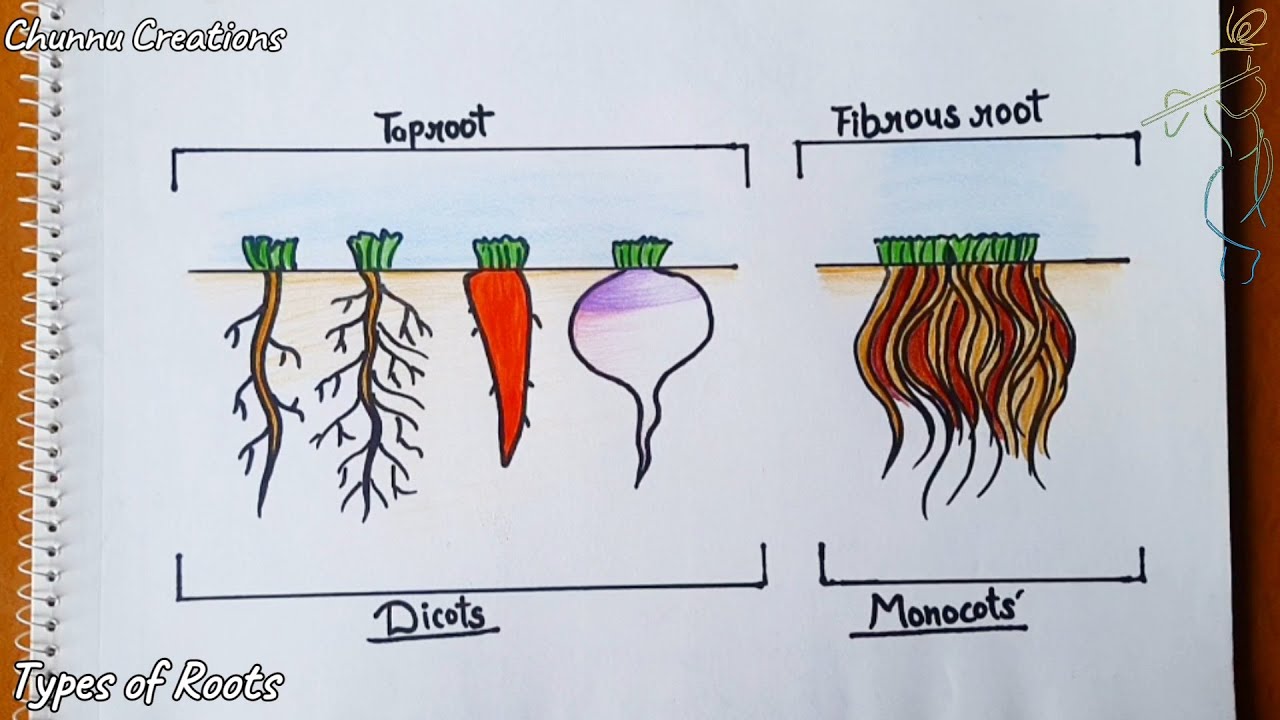 Chunnu Creations
Taproot
Fibrous root
Dicots
Monocots'
Types of Roots